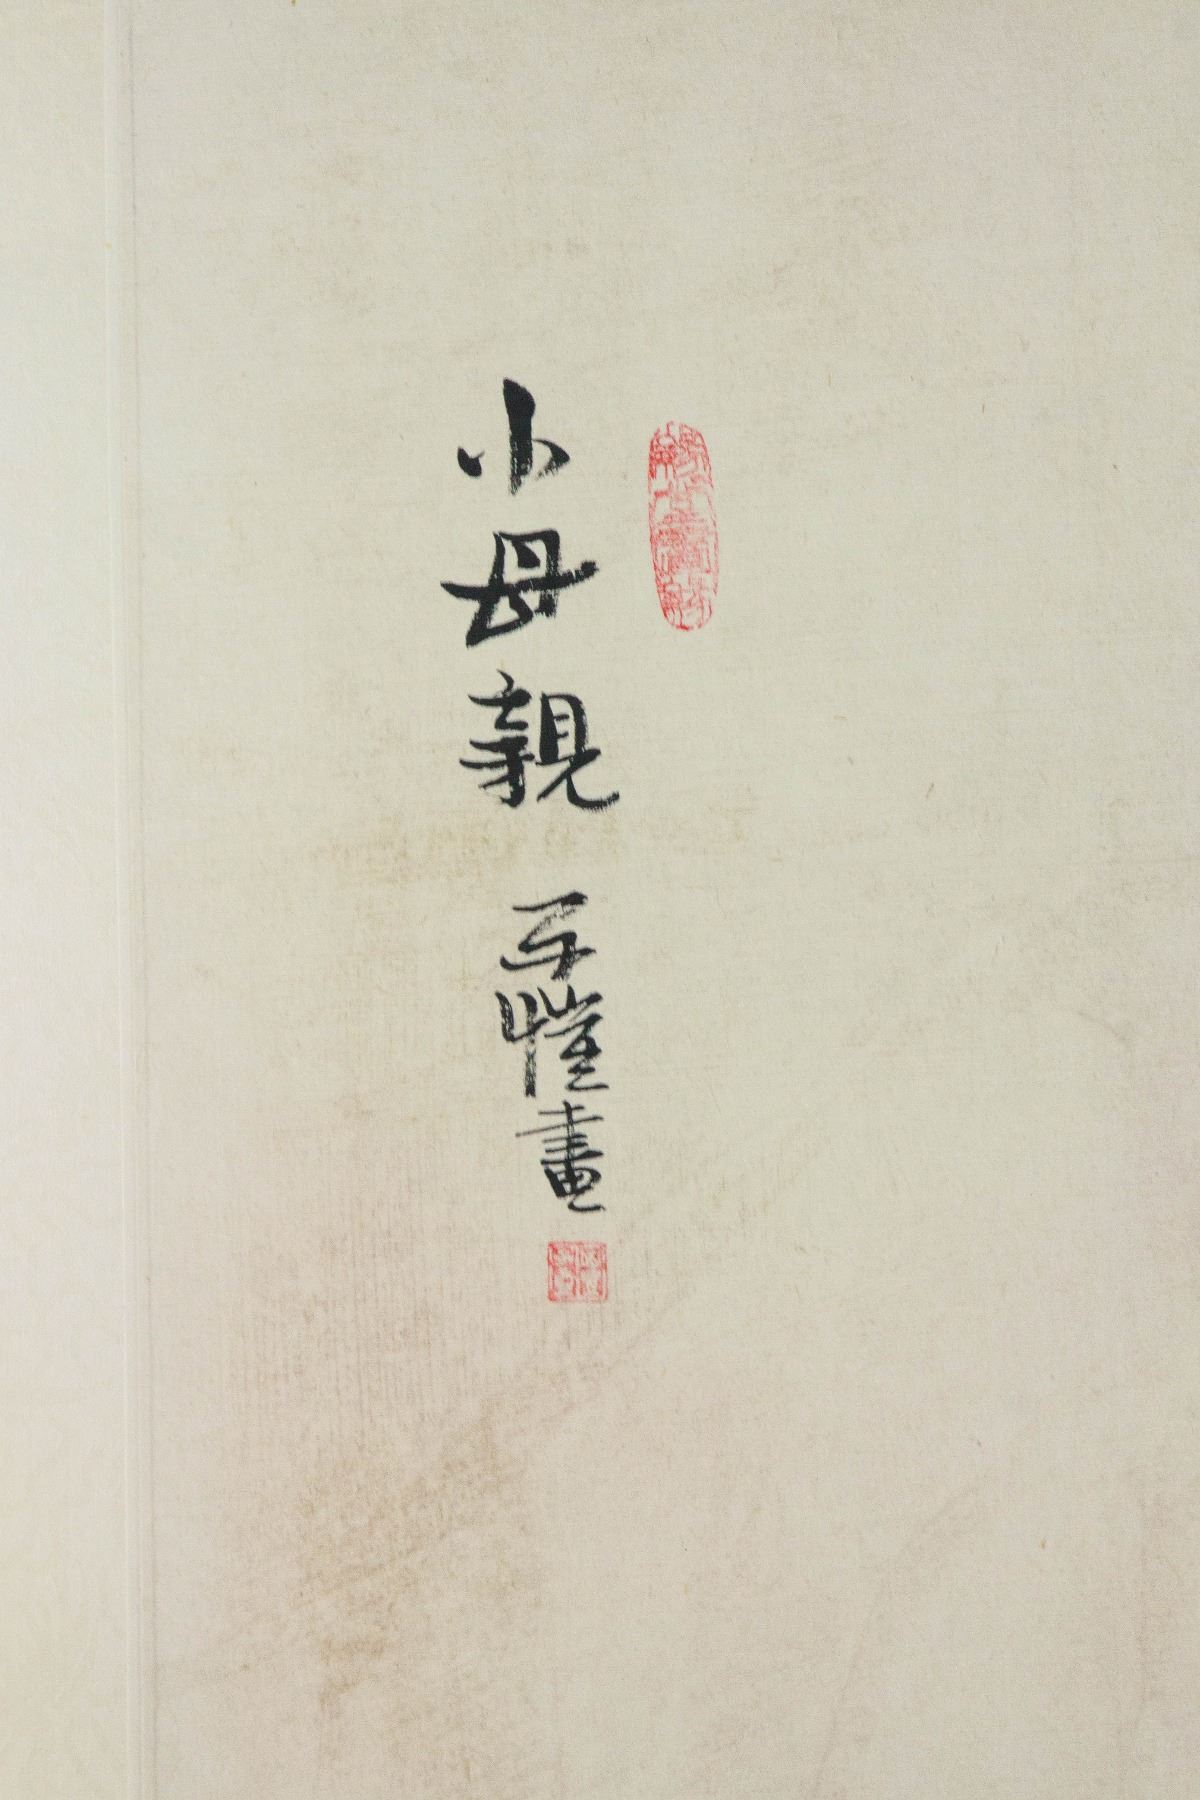 小母親
子愷畫